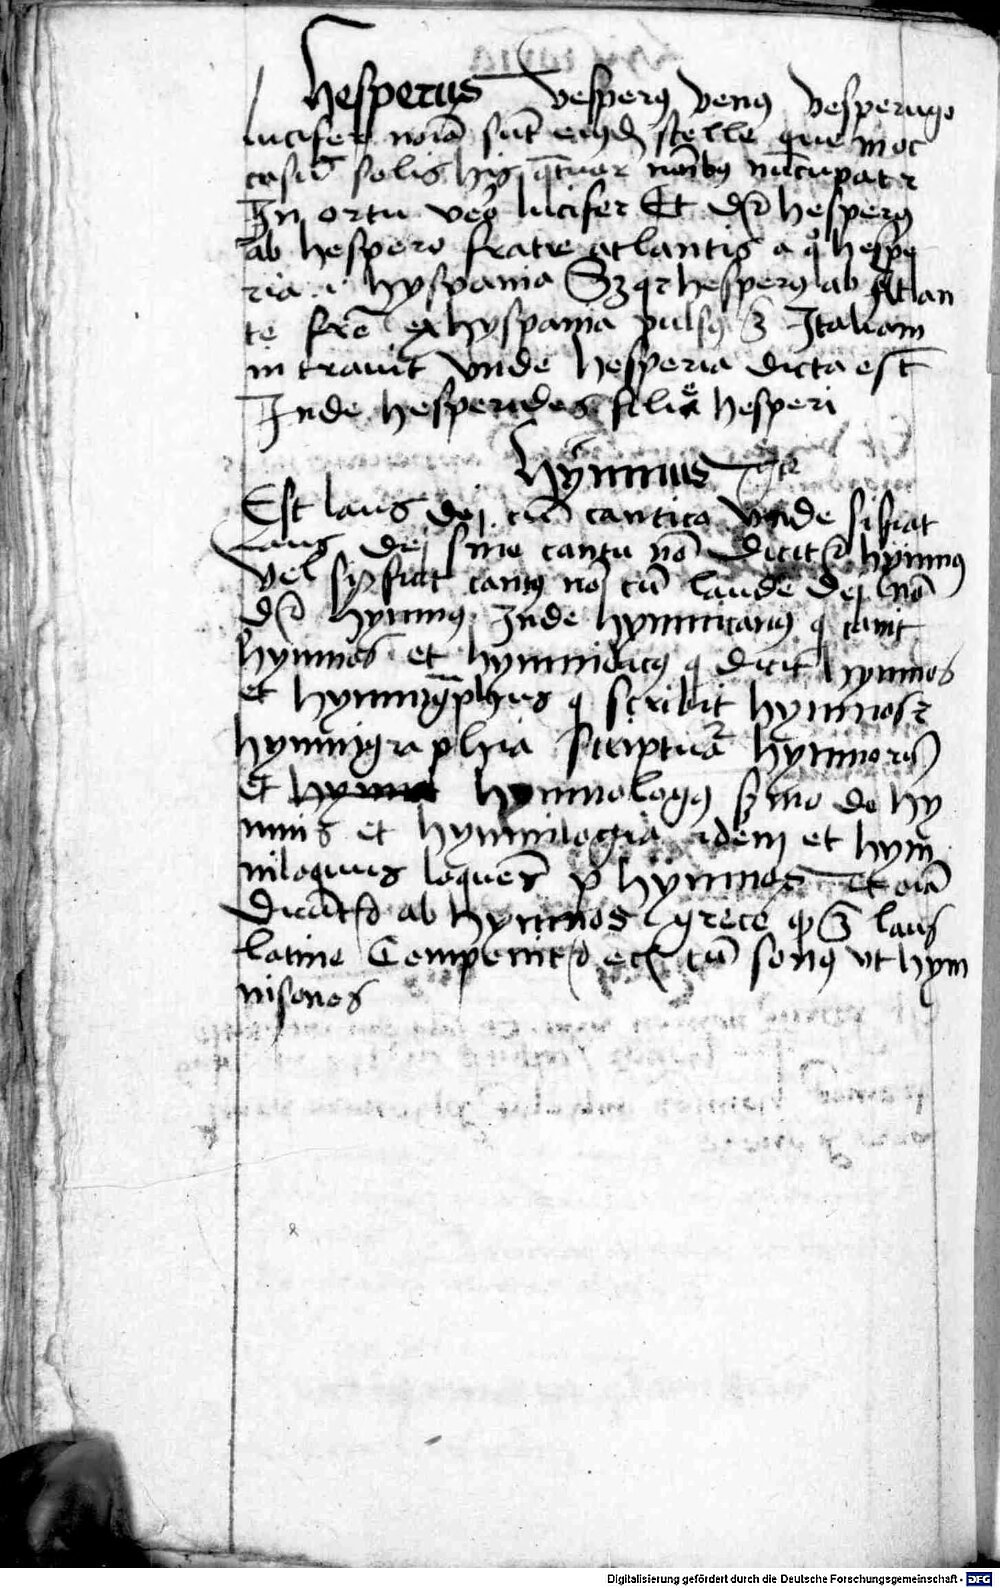 Hesperus vesperꝯ venꝯ vesperugo
lucifer noīa sūt eiꝯdē stelle que in oc
casu solis hiis qͣtuor noībꝯ nūcupatr
In ortu vᵒ lucifer Et dr̄ hesperꝯ
ab hespero fratre atlantis a qͦ hespe
ria i hyspania Sꝫ qr hesperꝯ ab Atlan
te frē ex hyspania pulsꝯ Italiam
intrauit vnde hesperia dicta est
Inde hesperides filie hesperi
Hymnus
Est laus dei cū cantico vnde si fiat
laus dei sine cantu nō dicitr hymnꝯ
vel si fiat cantꝯ nō cū laude dei nō
dr̄ hymnꝯ Inde hymnicanꝯ q canit
hymnos et hymnidicꝯ q dicit hymnos
et hymnigͣphus q scribit hymnos
hymnigraphia scriptura hymnorꝝ
et hymnologꝯ sermo de hy
mnis et hymnilogia idem et hym
niloquus loquens hymnos Et oīa
dicūtr ab hymnos grece laus
latine Componitr cū sonꝯ vt hym
nisonos
Digitalisierung gefördert durch die Deutsche Forschungsgemeinschaft - DFG